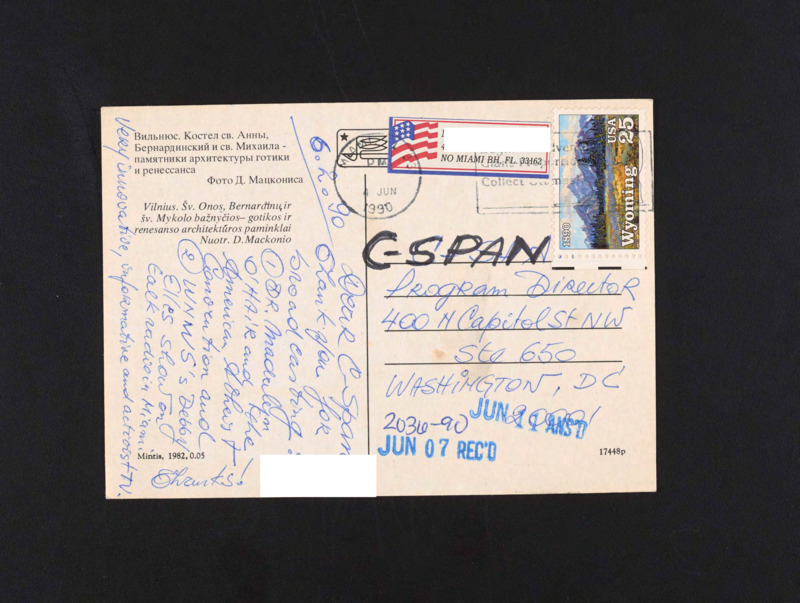 Вильнюс. Костел св. Анны,
Бернардинский и св. Михаила -
памятники архитектуры готики
и ренессанса
Фото Д. Мацкониса
Vilnius. Šv. Onos, Bernardinų ir
šv. Mykolo bažnyčios– gotikos ir
renesanso architektūros paminklai
Nuotr. D. Mackonio
6.2.90
Dear C-Span
Thank you for
broadcasting:
① DR. Madalyn
OHAIR and the
American Atheist
Convention and
② WNWS's Debby
Elles show on
talk radio in Miami.
Very innovative, informative and activist TV.
Thanks!
Mintis, 1982, 0.05
NO MIAMI BH, FL. 33162
PM
4 JUN
1990
Collect
USA 25
Wyoming
1890
C-SPAN
Program Director
400 N Capitol St NW
Ste 650
WASHINGTON, DC
20001
2036-90
JUN 11 ANS'D
JUN 07 REC'D
17448p